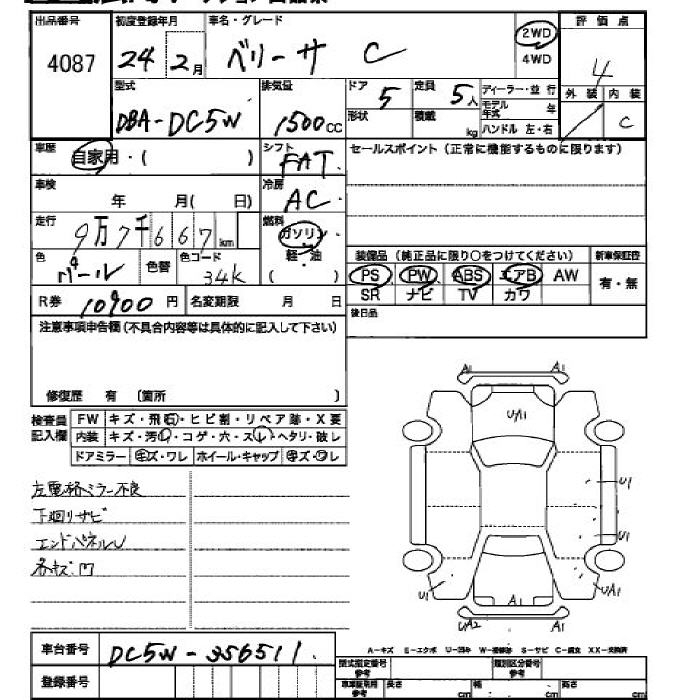 出品番号 初度登録年月 車名・グレード 2WD 評価点
4087 24 2月 ベリーサ C 4WD 4
型式 排気量 ドア 5 定員 5人 ディーラー・並行 外装 内装
モデル年式 年
DBA-DC5W 1500CC 形状 積載 kg ハンドル 左・右 C
車歴 自家用・( ) シフト FAT セールスポイント (正常に機能するものに限ります)
車検 年 月( 日) 冷房 AC
走行 9万7千667km 燃料 ガソリン
色 パール 色替 色コード 34K 軽・油 ( ) 装備品 (純正品に限り○をつけてください) 新車保証書
PS PW ABS エアB AW 有・無
R券 10900円 名変期限 月 日 SR ナビ TV カワ
注意事項申告欄(不具合内容等は具体的に記入して下さい) 後日品
修復歴 有 〔箇所 〕
検査員記入欄 FW キズ・飛石・ヒビ割・リペア跡・X要
内装 キズ・汚レ・コゲ・穴・スレ・ヘタリ・破レ
ドアミラー キズ・ワレ ホイール・キャップ キズ・ワレ
A1 A1
U/A1
左電格ミラー不良
U1
下廻りサビ
エンドパネルU
U1
各キズ凹
U1 UA1
UA2 A1 A1
車台番号 DC5W-356511
A-キズ E-エクボ U-凹み W-補修跡 S-サビ C-腐食 XX-交換済
登録番号 型式指定番号 参考 類別区分番号 参考
車庫証明用 参考 長さ cm 幅 cm 高さ cm